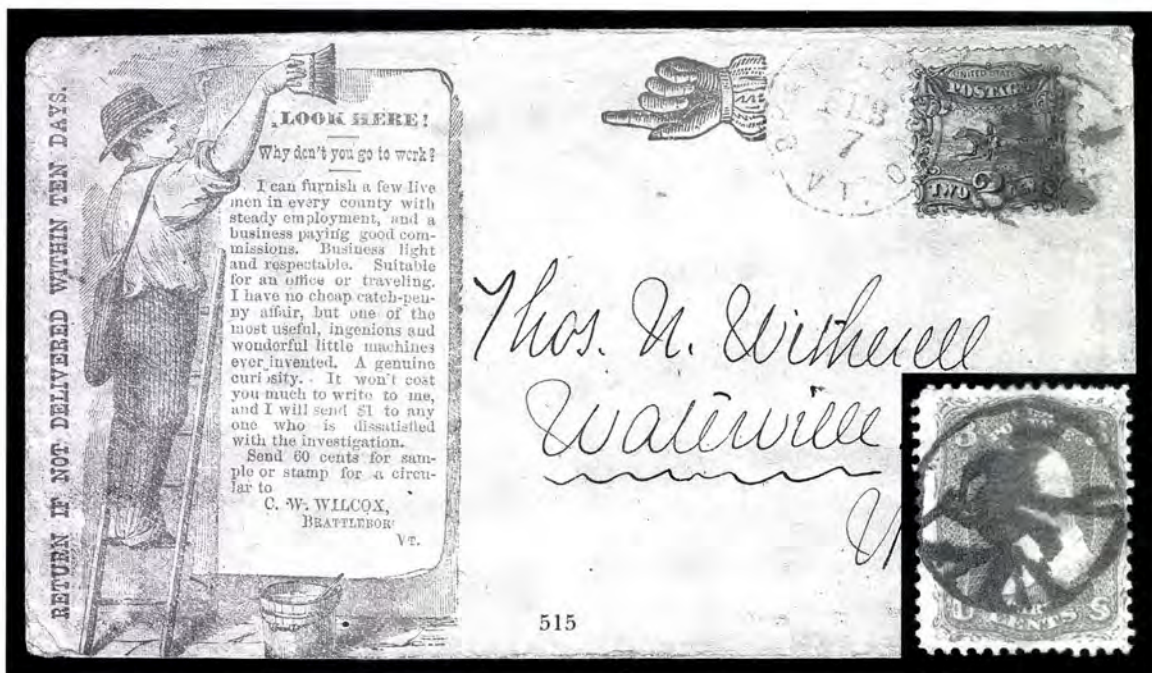 RETURN IF NOT DELIVERED WITHIN TEN DAYS.
LOOK HERE!
Why don't you go to work?
I can furnish a few live
men in every county with
steady employment, and a
business paying good com-
missions. Business light
and respectable. Suitable
for an office or traveling.
I have no cheap catch-pen-
ny affair, but one of the
most useful, ingenious and
wonderful little machines
ever invented. A genuine
curiosity. It won't cost
you much to write to me,
and I will send $1 to any
one who is dissatisfied
with the investigation.
Send 60 cents for sam-
ple or stamp for a circu-
lar to
C. W. WILCOX,
BRATTLEBOR
VT.
FEB
7
UNITED STATES
POSTAGE
TWO 2
Thos. N. Witherell
Waterville
515
U CENTS S